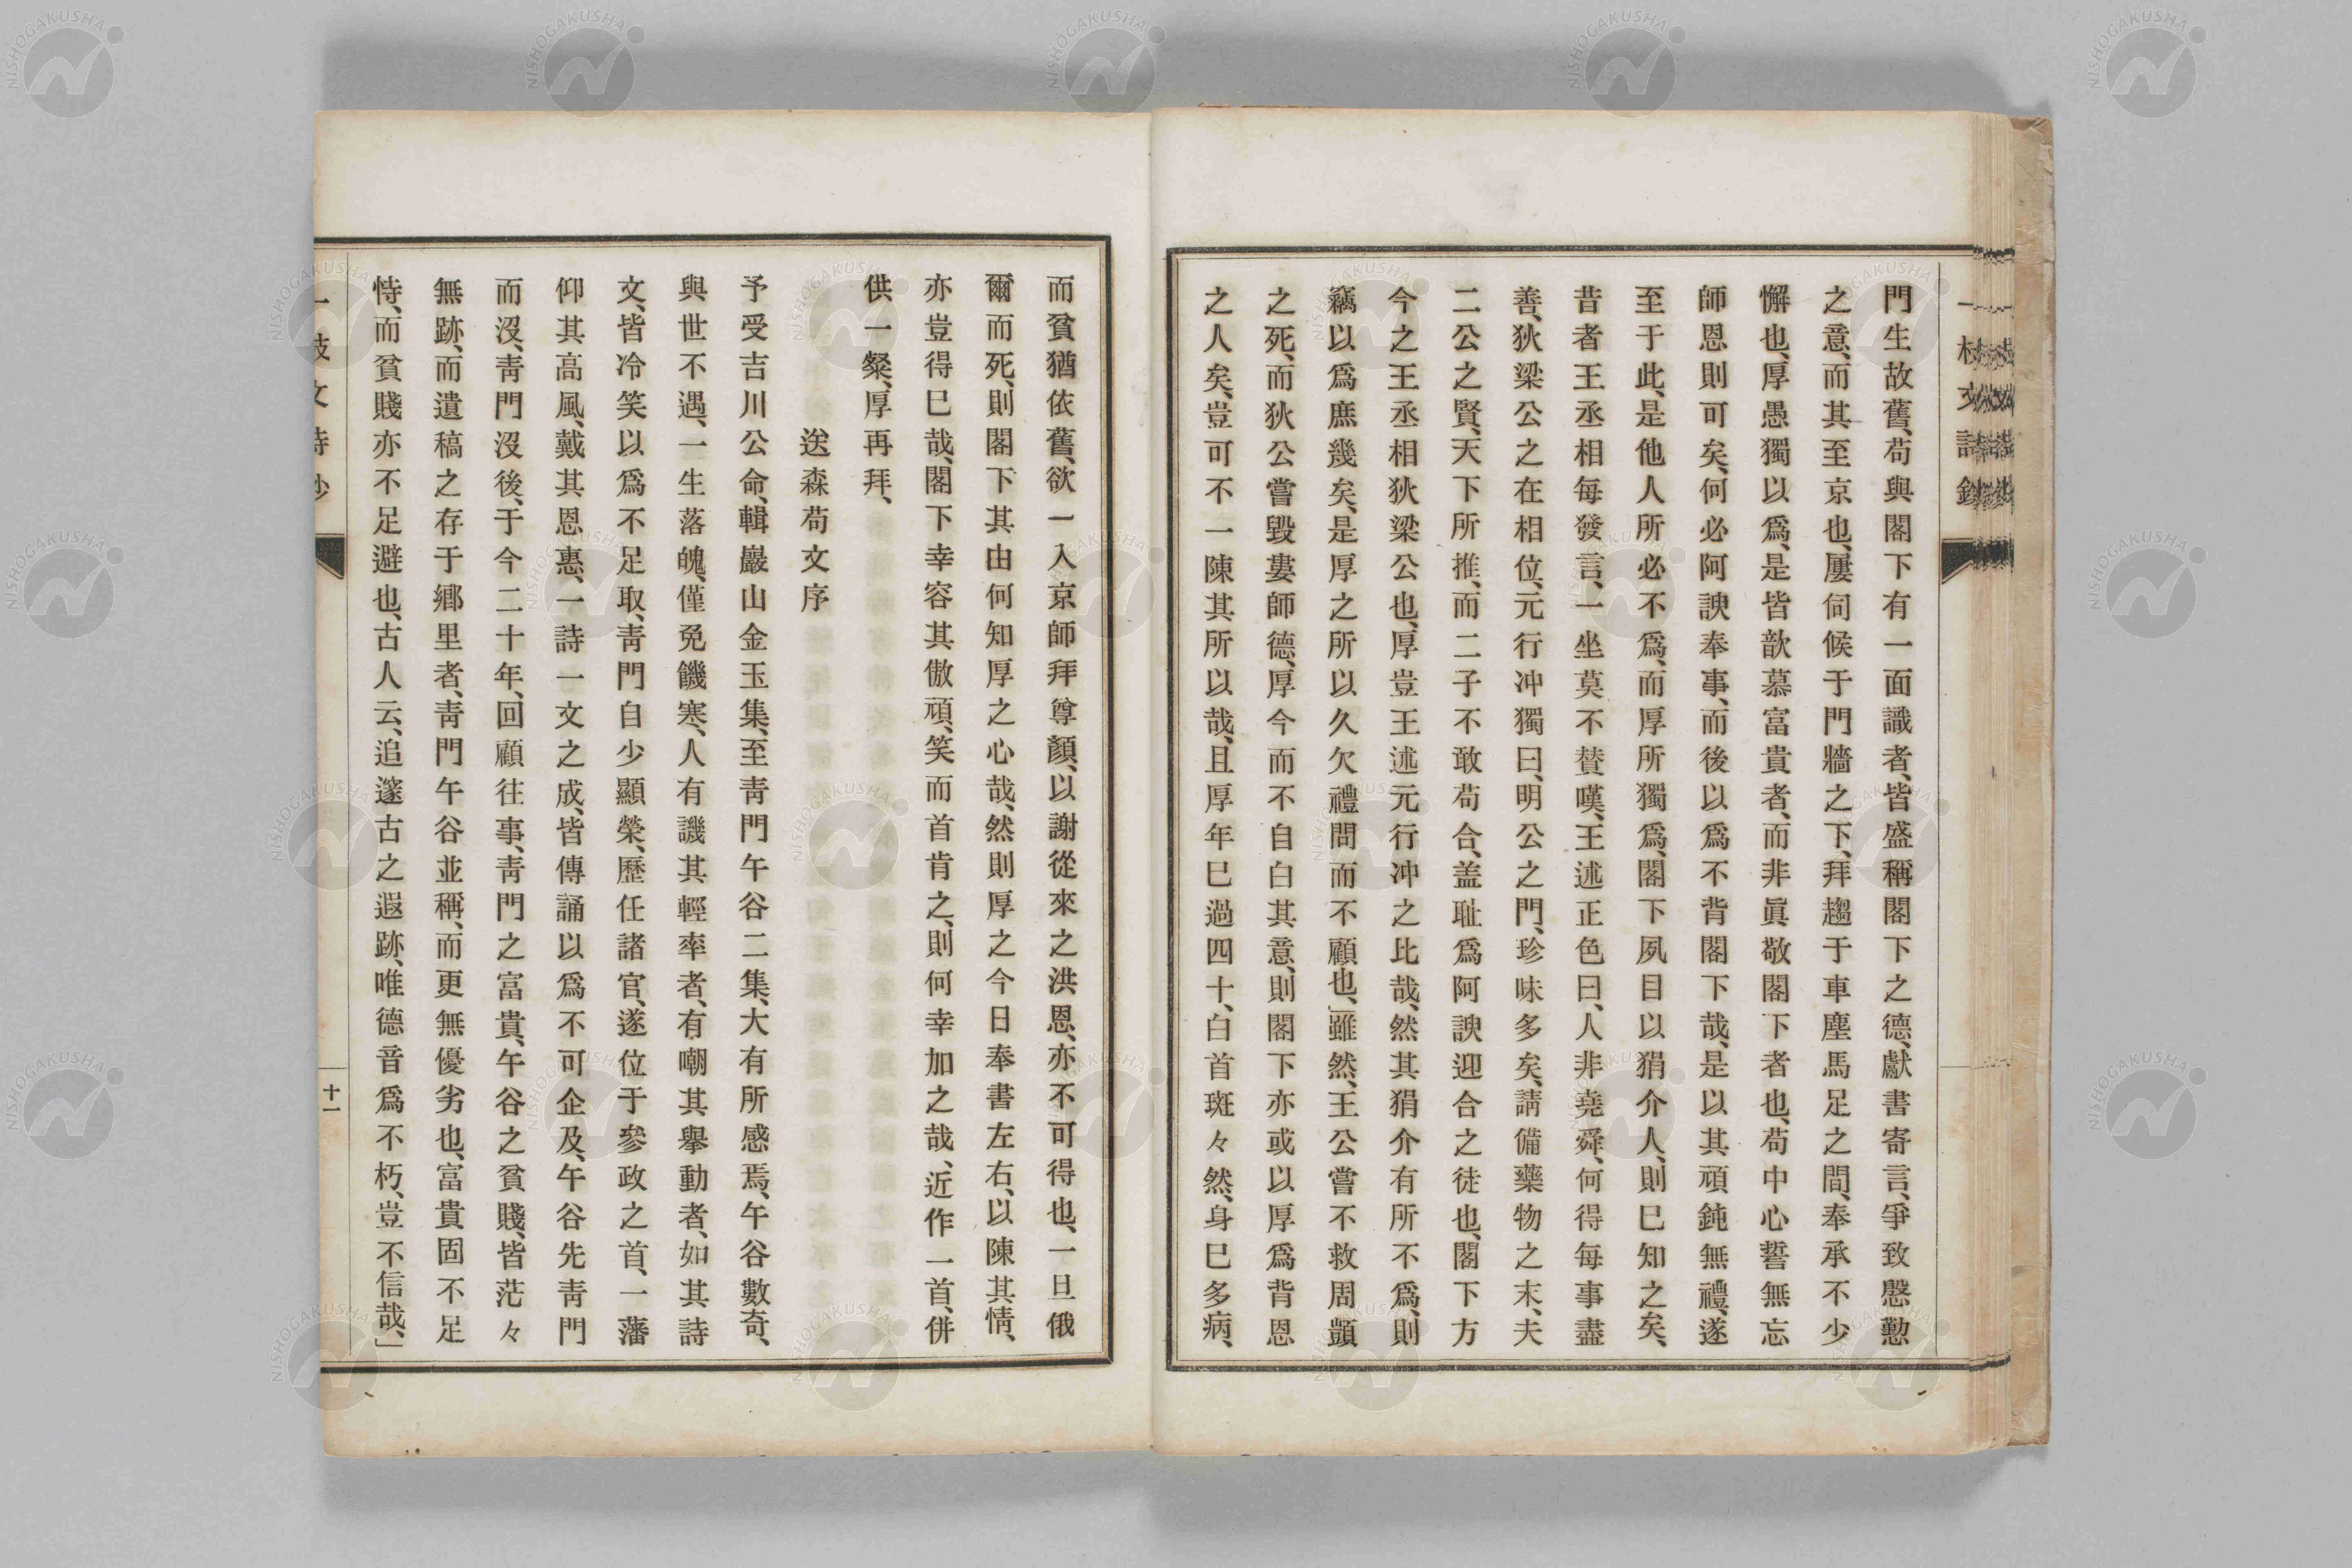 門生故舊、苟與閣下有一面識者、皆盛稱閣下之德、獻書寄言、爭致慇懃
之意、而其至京也、屢伺候于門牆之下、拜趨于車塵馬足之間、奉承不少
懈也、厚愚獨以爲、是皆歆慕富貴者、而非眞敬閣下者也、苟中心誓無忘
師恩則可矣、何必阿諛奉事、而後以爲不背閣下哉、是以其頑鈍無禮、遂
至于此、是他人所必不爲、而厚所獨爲、閣下夙目以狷介人、則巳知之矣、
昔者王丞相每發言、一坐莫不賛嘆、王述正色曰、人非堯舜、何得每事盡
善、狄梁公之在相位、元行冲獨曰、明公之門、珍味多矣、請備藥物之末、夫
二公之賢、天下所推、而二子不敢苟合、盖耻爲阿諛迎合之徒也、閣下方
今之王丞相狄梁公也、厚豈王述元行冲之比哉、然其狷介有所不爲、則
竊以爲庶幾矣、是厚之所以久欠禮問而不顧也、」雖然、王公嘗不救周顗
之死、而狄公嘗毀婁師德、厚今而不自白其意、則閣下亦或以厚爲背恩
之人矣、豈可不一陳其所以哉、且厚年巳過四十、白首斑々然、身巳多病、
而貧猶依舊、欲一入京師拜尊顏、以謝從來之洪恩、亦不可得也、一旦俄
爾而死、則閣下其由何知厚之心哉、然則厚之今日奉書左右、以陳其情、
亦豈得巳哉、閣下幸容其傲頑、笑而首肯之、則何幸加之哉、近作一首、併
供一粲、厚再拜、
送森苟文序
予受吉川公命、輯巖山金玉集、至靑門午谷二集、大有所感焉、午谷數奇、
與世不遇、一生落魄、僅免饑寒、人有譏其輕率者、有嘲其擧動者、如其詩
文、皆冷笑以爲不足取、靑門自少顯榮、歷任諸官、遂位于參政之首、一藩
仰其高風、戴其恩惠、一詩一文之成、皆傳誦以爲不可企及、午谷先靑門
而沒、靑門沒後、于今二十年、回顧往事、靑門之富貴、午谷之貧賤、皆茫々
無跡、而遺稿之存于鄕里者、靑門午谷並稱、而更無優劣也、富貴固不足
恃、而貧賤亦不足避也、古人云、追邃古之遐跡、唯德音爲不朽、豈不信哉、」
十一